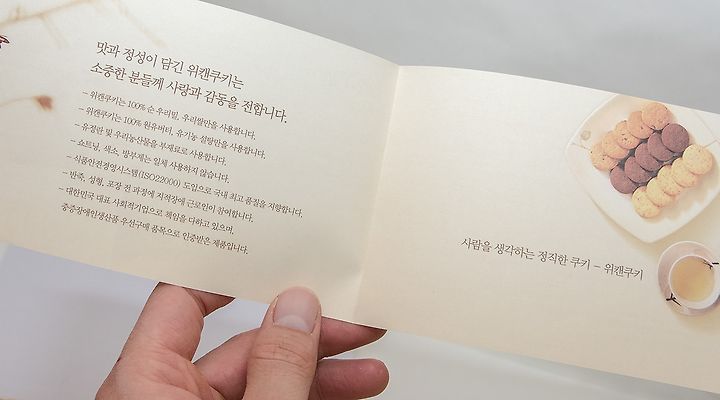 맛과 정성이 담긴 위캔쿠키는
소중한 분들께 사랑과 감동을 전합니다.
– 위캔쿠키는 100% 순 우리밀, 우리쌀만을 사용합니다.
– 위캔쿠키는 100% 원유버터, 유기농 설탕만을 사용합니다.
– 유정란 및 우리농산물을 부재료로 사용합니다.
– 쇼트닝, 색소, 방부제는 일체 사용하지 않습니다.
– 식품안전경영시스템(ISO22000) 도입으로 국내 최고 품질을 지향합니다.
– 반죽, 성형, 포장 전 과정에 지적장애 근로인이 참여합니다.
– 대한민국 대표 사회적기업으로 책임을 다하고 있으며,
중증장애인생산품 우선구매 품목으로 인증받은 제품입니다.
사람을 생각하는 정직한 쿠키 – 위캔쿠키